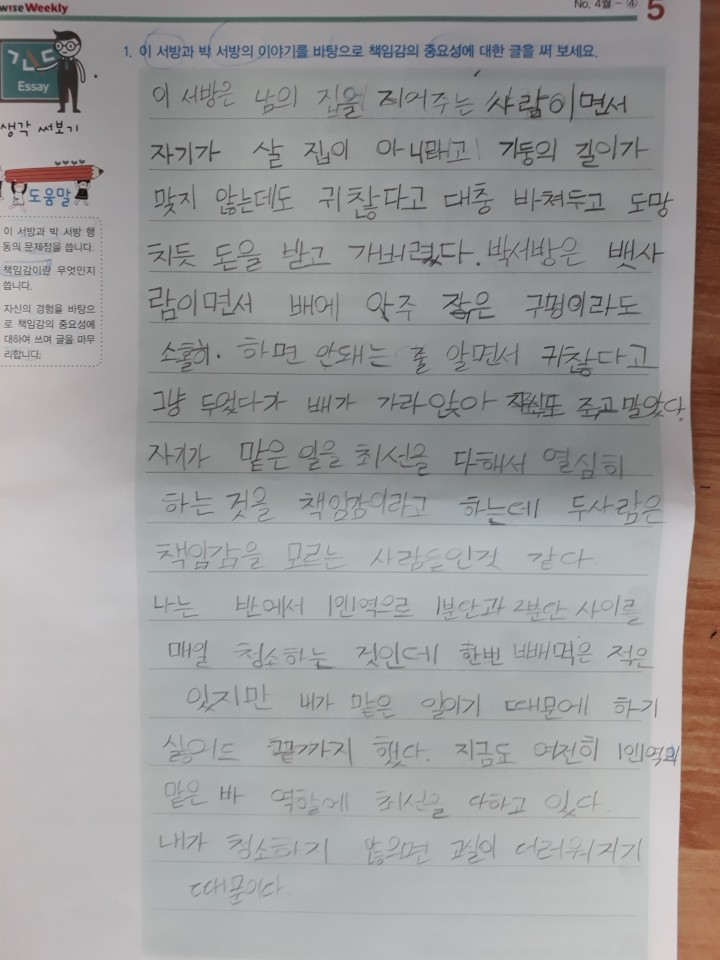 wise Weekly
No. 4월 - ④ 5
1. 이 서방과 박 서방의 이야기를 바탕으로 책임감의 중요성에 대한 글을 써 보세요.
Essay
생각 써보기
도움말
이 서방과 박 서방 행
동의 문제점을 씁니다.
책임감이란 무엇인지
씁니다.
자신의 경험을 바탕으
로 책임감의 중요성에
대하여 쓰며 글을 마무
리합니다.
이 서방은 남의 집을 지어주는 사람이면서
자기가 살 집이 아니래고 기둥의 길이가
맞지 않는데도 귀찮다고 대충 바쳐두고 도망
치듯 돈을 받고 가버렸다. 박서방은 뱃사
람이면서 배에 아주 작은 구멍이라도
소홀히 하면 안돼는 줄 알면서 귀찮다고
그냥 두었다가 배가 가라앉아 자식도 죽고 말았다.
자기가 맡은 일을 최선을 다해서 열심히
하는 것을 책임감이라고 하는데 두사람은
책임감을 모르는 사람들인것 같다.
나는 반에서 1인1역으로 1분단과 2분단 사이를
매일 청소하는 것인데 한번 빼먹은 적은
있지만 내가 맡은 일이기 때문에 하기
싫어도 끝까지 했다. 지금도 여전히 1인1역의
맡은 바 역할에 최선을 다하고 있다.
내가 청소하기 않으면 교실이 더러워지기
때문이다.